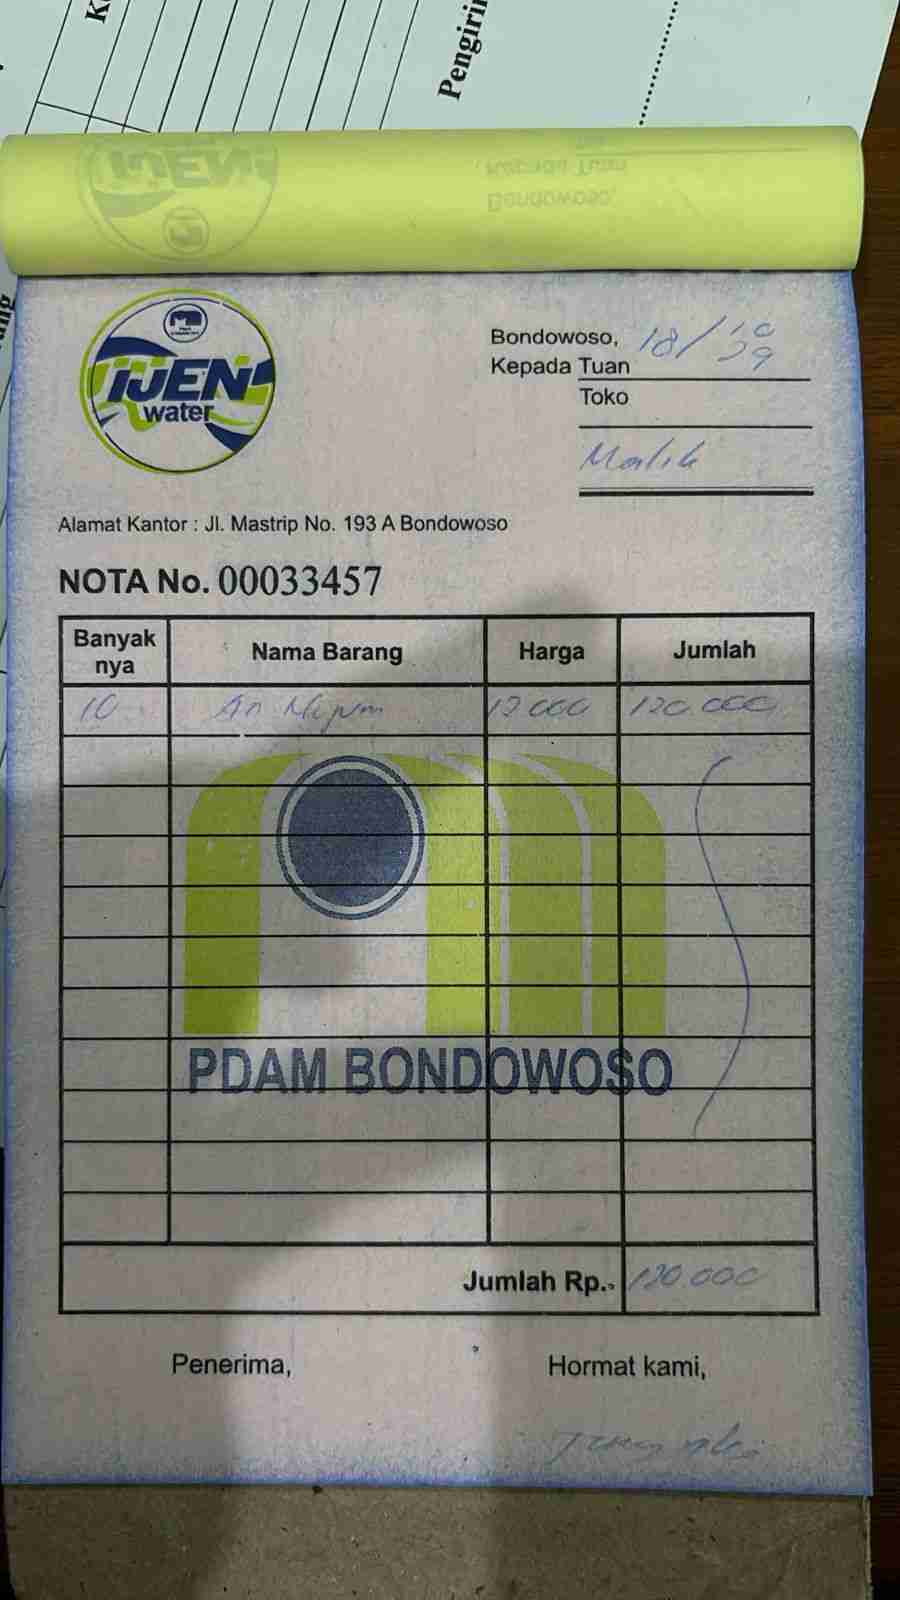 Pengirim
IJEN
water
Bondowoso, 18/10
Kepada Tuan
Toko
Malik
Alamat Kantor : Jl. Mastrip No. 193 A Bondowoso
NOTA No. 00033457
Banyak nya Nama Barang Harga Jumlah
10 12000 120.000
PDAM BONDOWOSO
Jumlah Rp. 120.000
Penerima, Hormat kami,